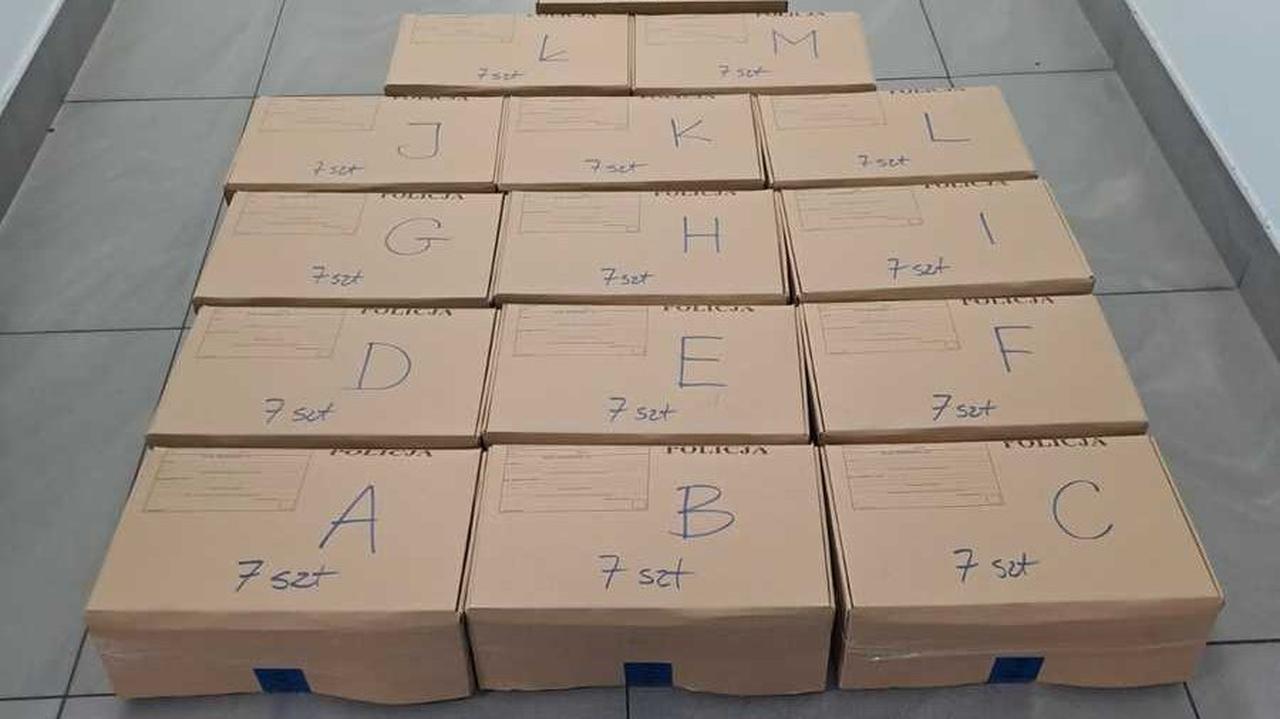 POLICJA
Ł
7 szt
POLICJA
M
7 szt
POLICJA
J
7 szt
POLICJA
K
7 szt
POLICJA
L
7 szt
POLICJA
G
7 szt
POLICJA
H
7 szt
POLICJA
I
7 szt
POLICJA
D
7 szt
POLICJA
E
7 szt
POLICJA
F
7 szt
POLICJA
A
7 szt
POLICJA
B
7 szt
POLICJA
C
7 szt